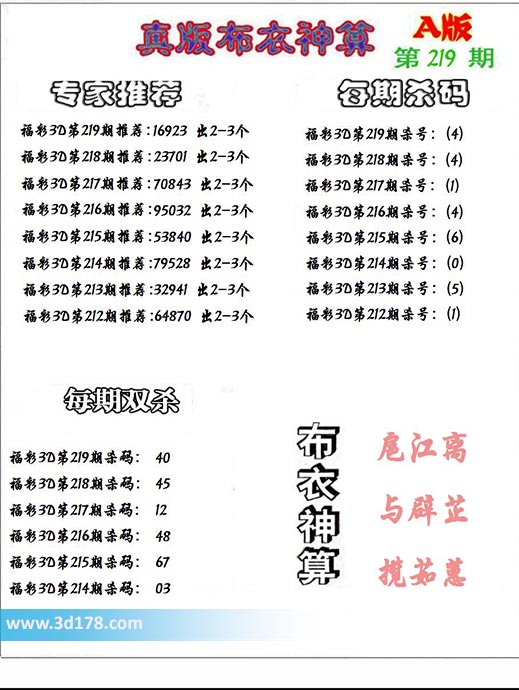 真版布衣神算
A版
第 219 期
专家推荐
福彩3D第219期推荐:16923 出2-3个
福彩3D第218期推荐:23701 出2-3个
福彩3D第217期推荐:70843 出2-3个
福彩3D第216期推荐:95032 出2-3个
福彩3D第215期推荐:53840 出2-3个
福彩3D第214期推荐:79528 出2-3个
福彩3D第213期推荐:32941 出2-3个
福彩3D第212期推荐:64870 出2-3个
每期杀码
福彩3D第219期杀号: (4)
福彩3D第218期杀号: (4)
福彩3D第217期杀号: (1)
福彩3D第216期杀号: (4)
福彩3D第215期杀号: (6)
福彩3D第214期杀号: (0)
福彩3D第213期杀号: (5)
福彩3D第212期杀号: (1)
每期双杀
福彩3D第219期杀码: 40
福彩3D第218期杀码: 45
福彩3D第217期杀码: 12
福彩3D第216期杀码: 48
福彩3D第215期杀码: 67
福彩3D第214期杀码: 03
布衣神算
扈江离
与辟芷
揽茹蕙
www.3d178.com